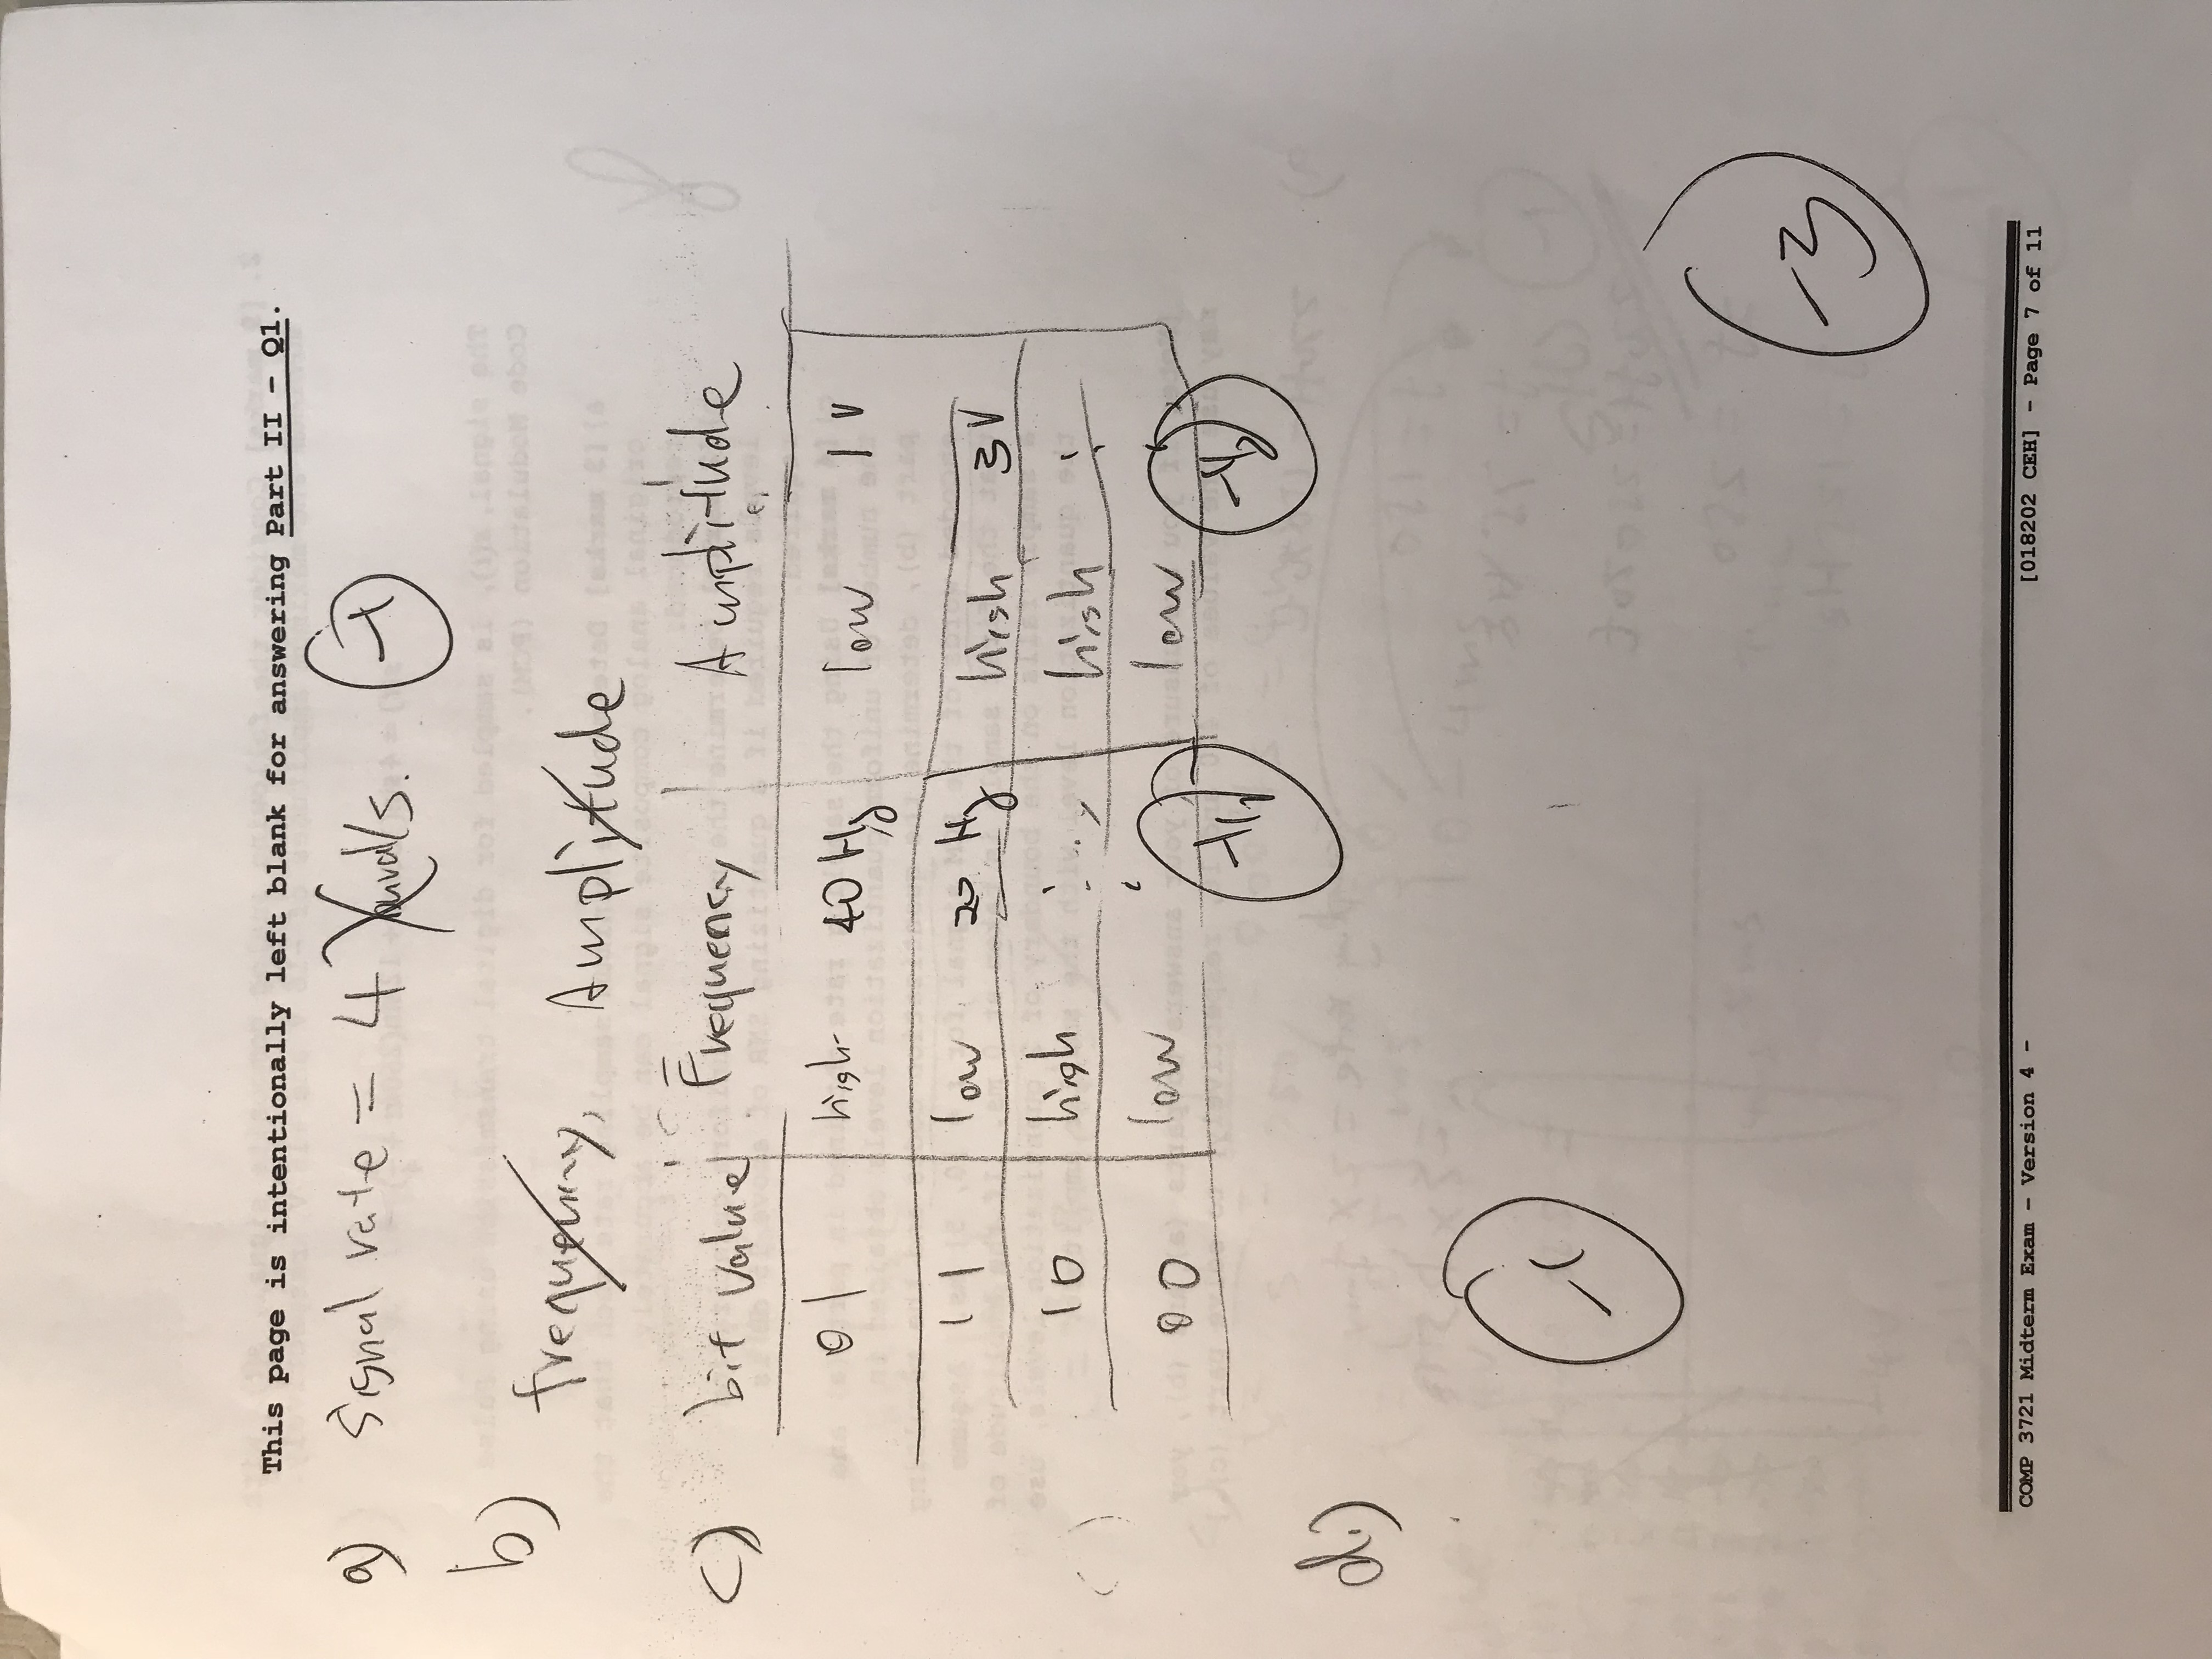 This page is intentionally left blank for answering Part II - Q1.
a) Signal rate = 4 baud/s. -1
b) frequency, Amplitude
c) bit value Frequency Amplitude
01 high 40 Hz low 1 V
11 low 20 Hz high 3 V
10 high high
00 low low
-1/2 -1/2
d.)
-1
-3
COMP 3721 Midterm Exam - Version 4 - [018202 CEH] - Page 7 of 11